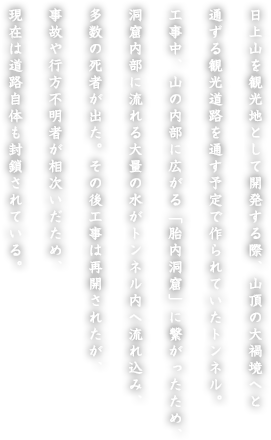 日上山を観光地として開発する際　山頂の大禍境へと
通ずる観光道路を通す予定で作られていたトンネル。
工事中　山の内部に広がる「胎内洞窟」に繋がったため
洞窟内部に流れる大量の水がトンネル内へ流れ込み
多数の死者が出た。その後工事は再開されたが
事故や行方不明者が相次いだため
現在は道路自体も封鎖されている。